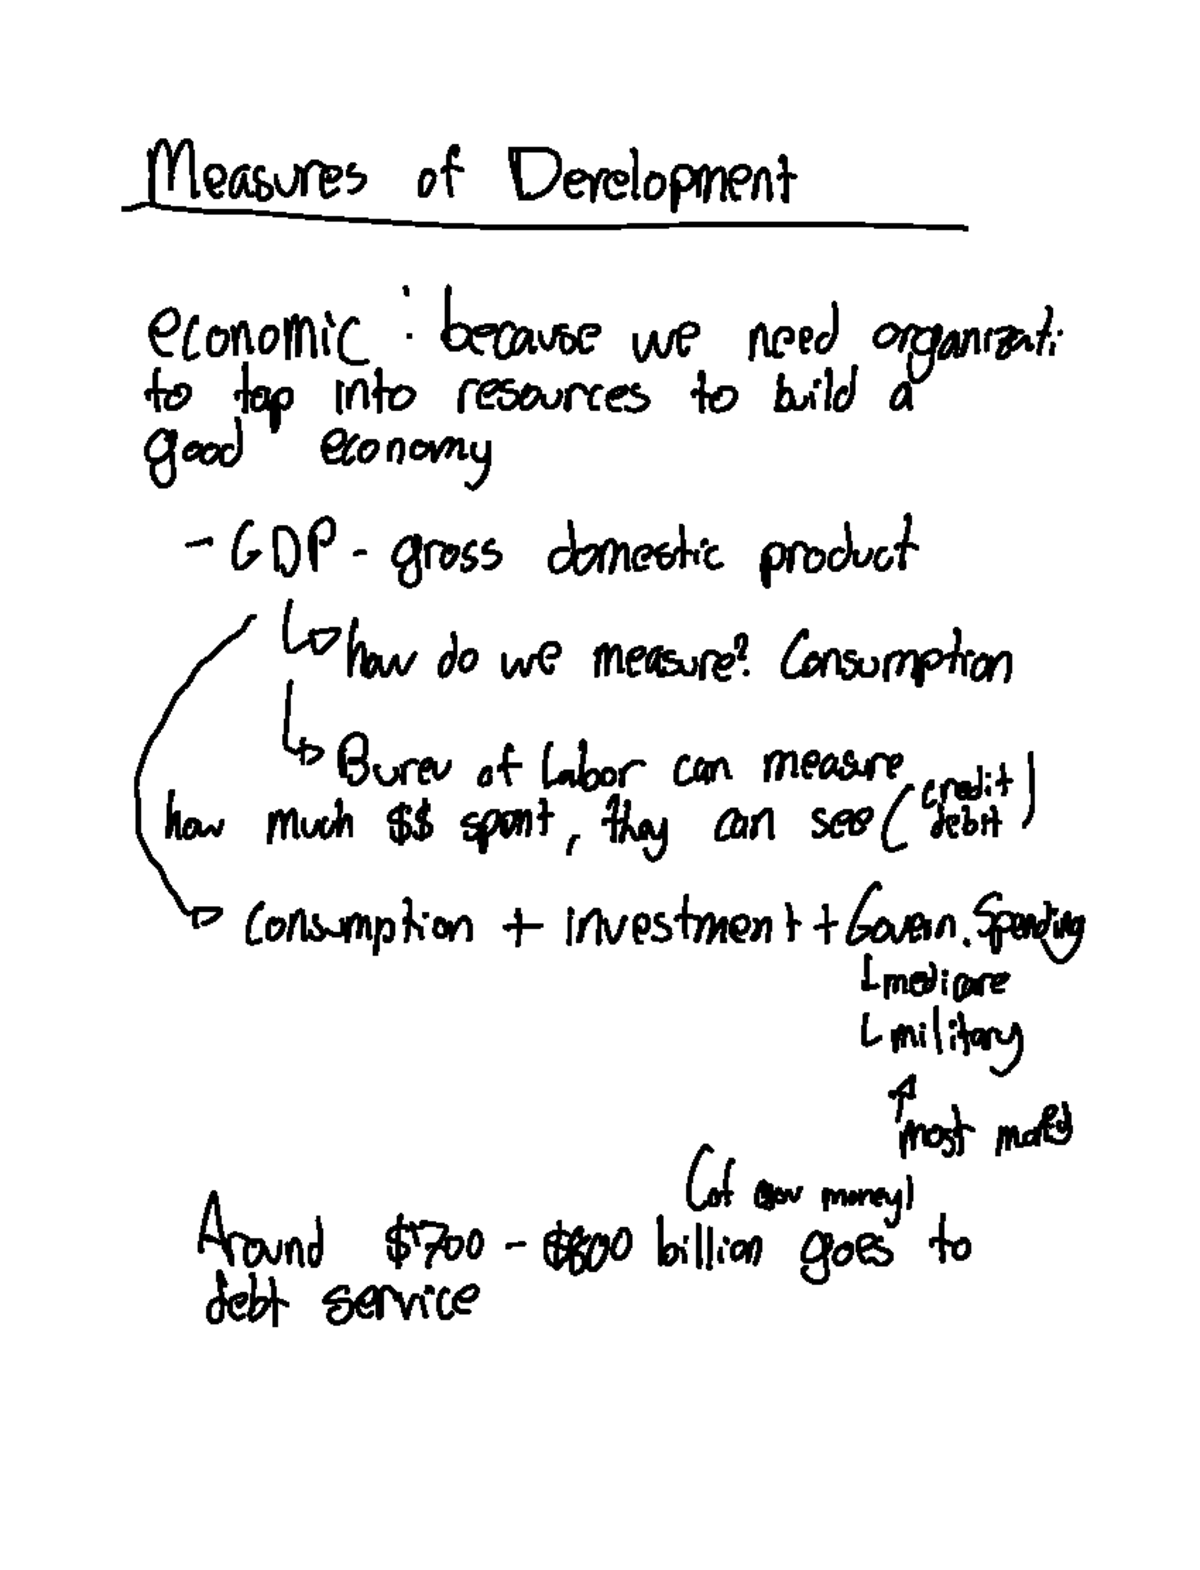 Measures of Development
economic : because we need organizati
to tap into resources to build a
good economy
- GDP - gross domestic product
how do we measure? Consumption
Bureu of Labor can measure
how much $$ spent, they can see (credit debit)
Consumption + investment + Govern. Spending
medicare
military
most money
(of gov money)
Around $700 - $800 billion goes to
debt service